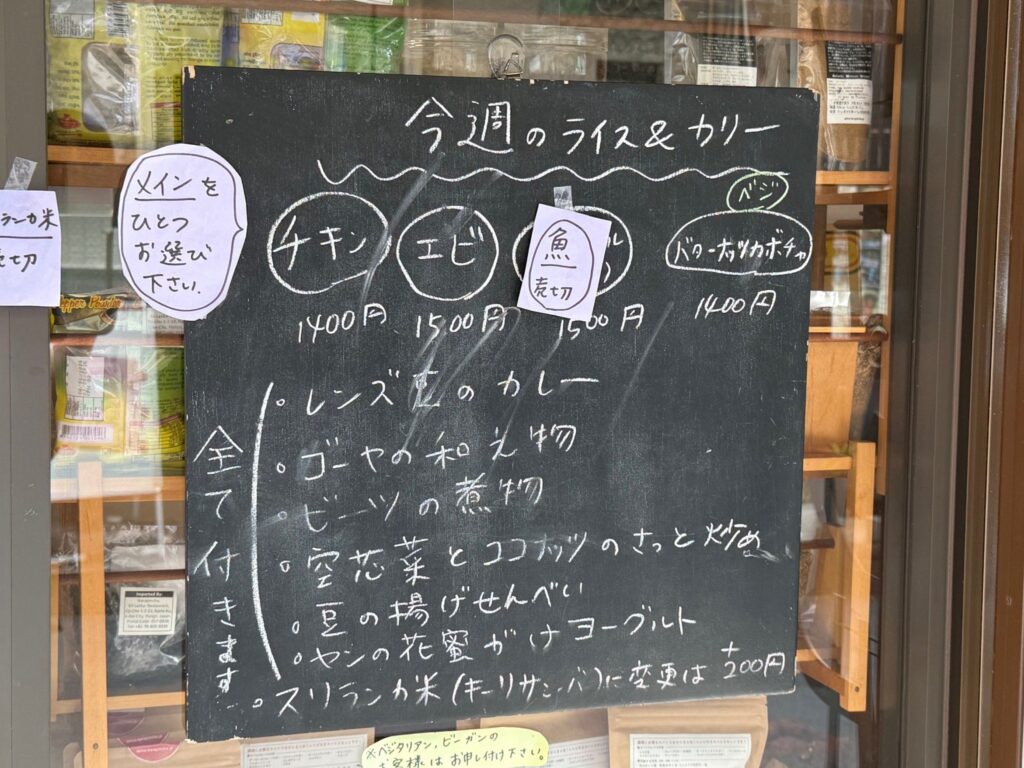 今週のライス&カリー
メインを
ひとつ
お選び
下さい.
ランカ米
売切
チキン
1400円
エビ
1500円
魚
売切
1500円
ベジ
バターナッツカボチャ
1400円
全て付きます
。レンズ豆のカレー
。ゴーヤの和え物
。ビーツの煮物
。空芯菜とココナッツのさっと炒め
。豆の揚げせんべい
。ヤシの花蜜がけヨーグルト
。スリランカ米(キーリサンバ)に変更は +200円
※ベジタリアン,ビーガンの
お客様はお申し付け下さい。
Pepper Powder
Imported By: